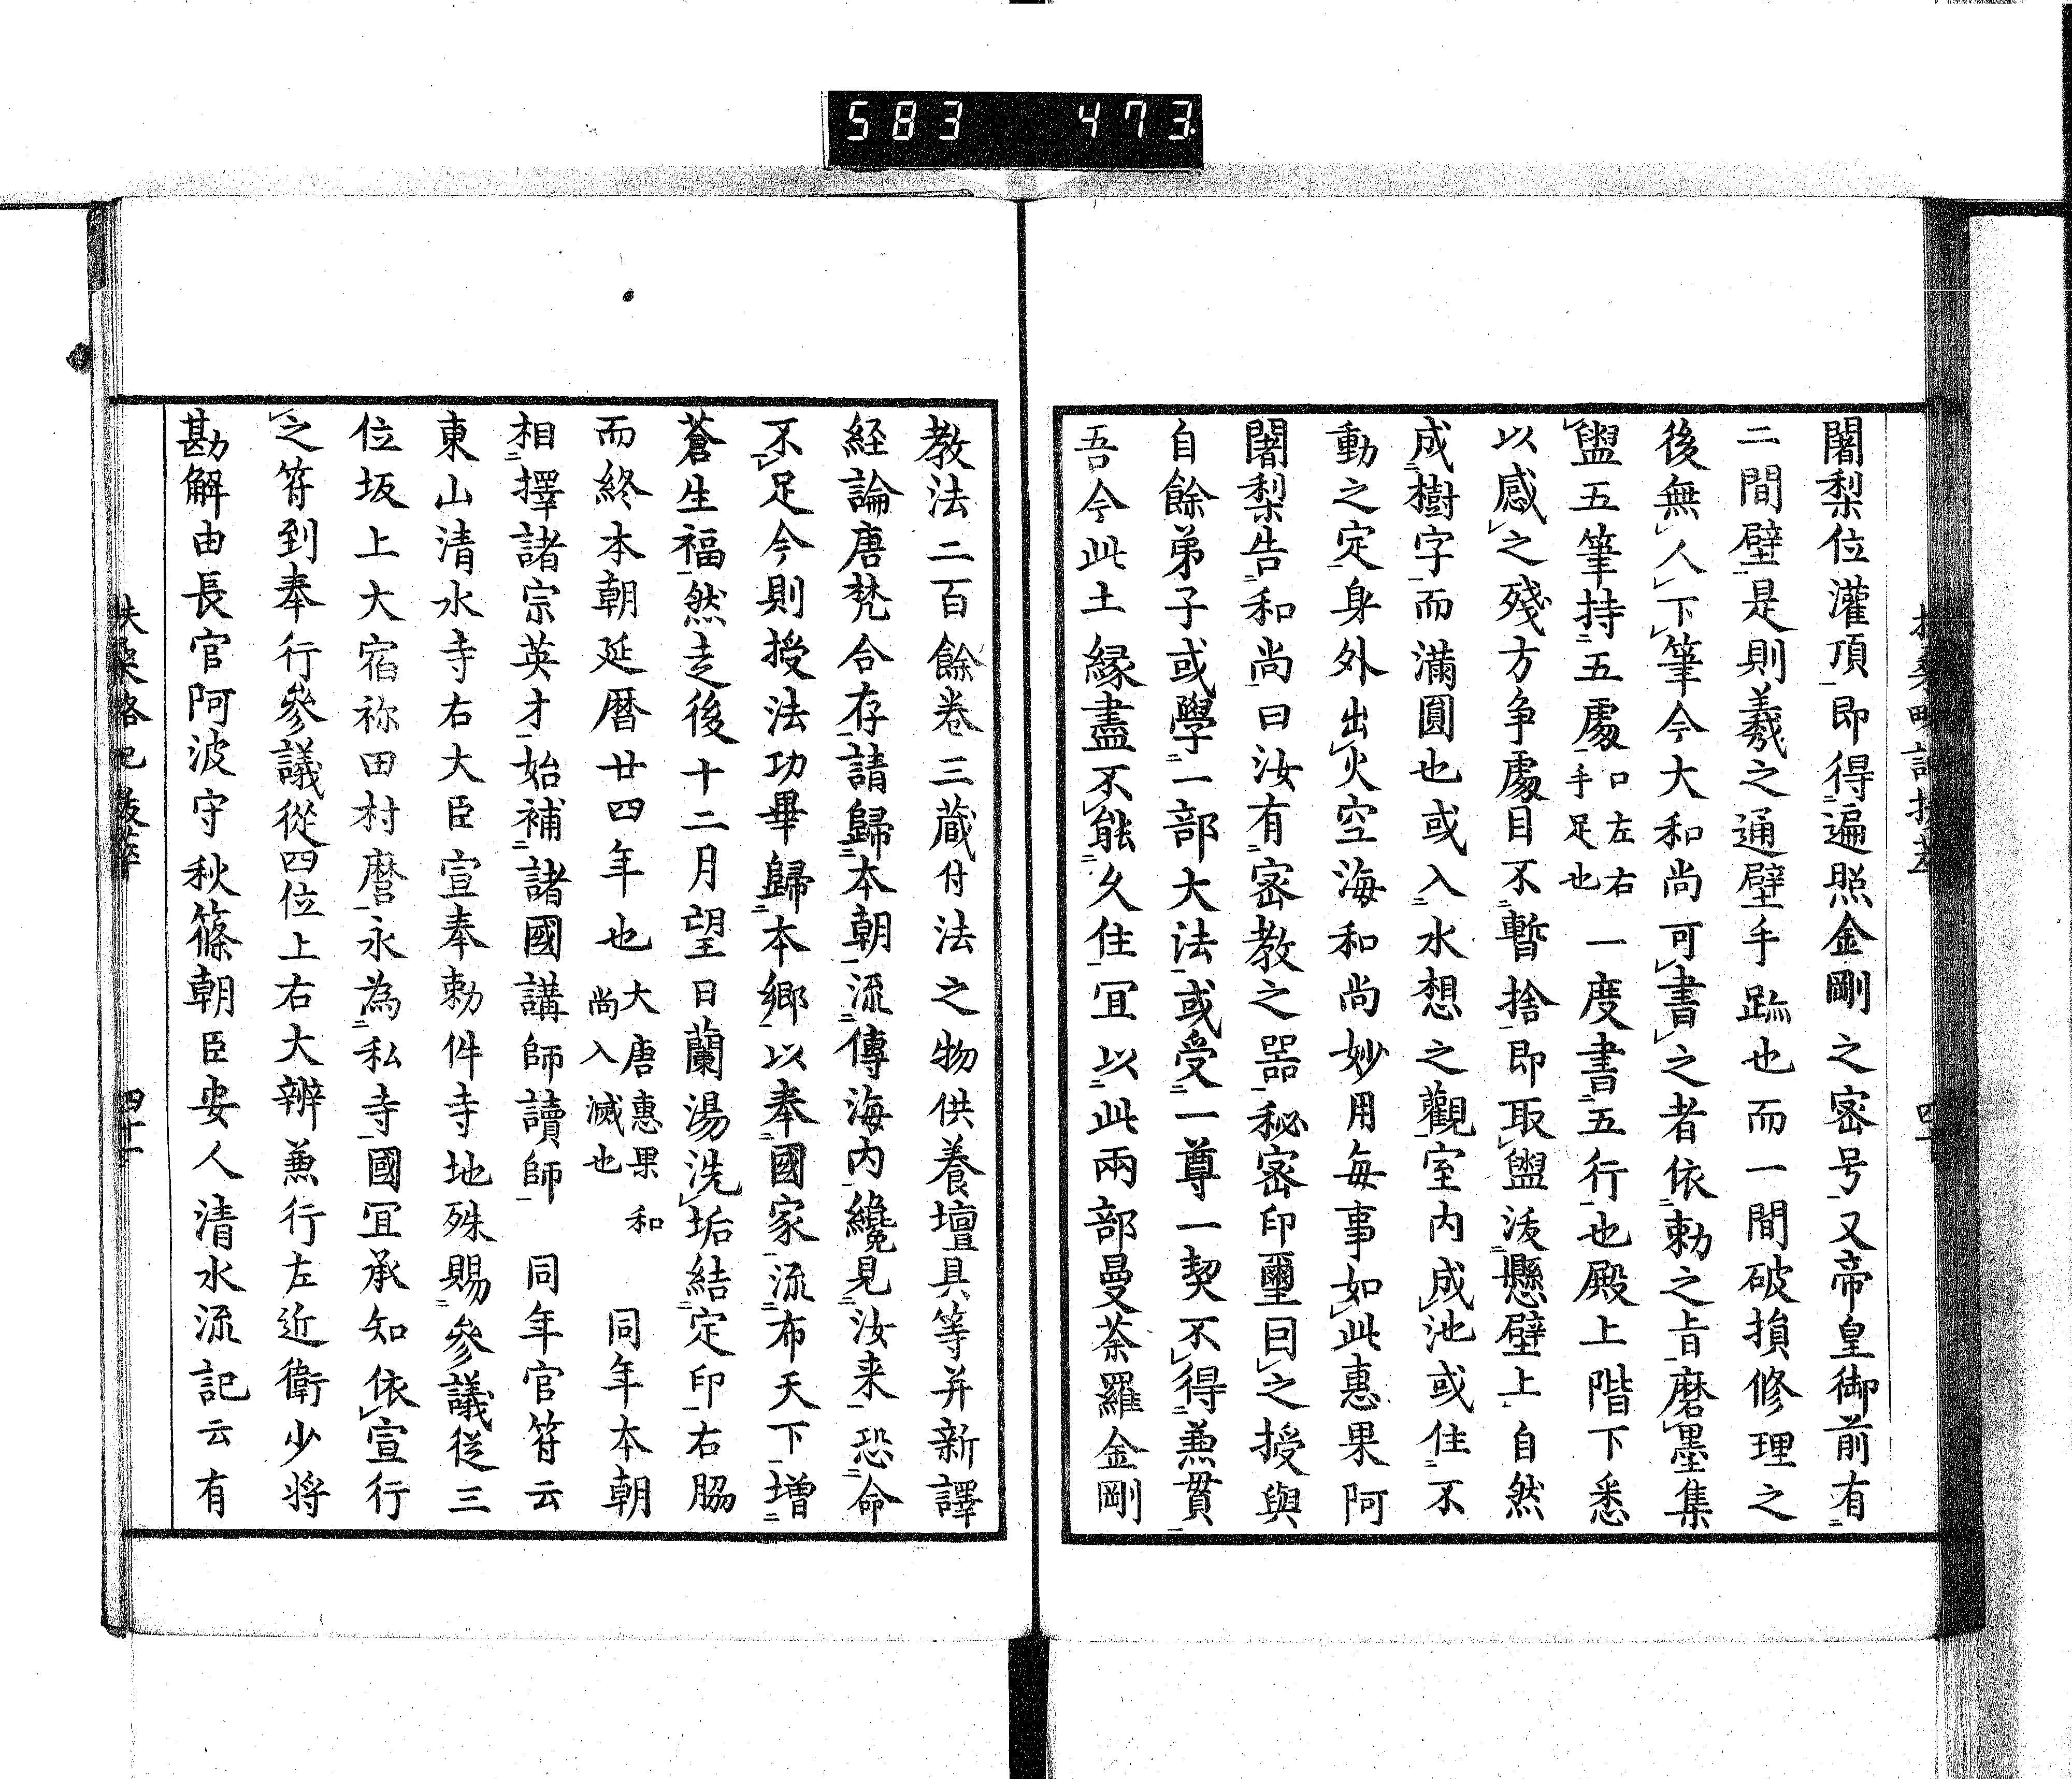 583 473
闍梨位灌頂即得遍照金剛之密号又帝皇御前有
二間壁是則羲之通壁手跡也而一間破損修理之
後無人下筆今大和尚可書之者依勅之旨磨墨集
盥五筆持五處口左右手足也一度書五行也殿上階下悉
以感之殘方争處目不暫捨即取盥泼懸壁上自然
成樹字而滿圓也或入水想之觀室内成池或住不
動之定身外出火空海和尚妙用每事如此惠果阿
闍梨告和尚曰汝有密教之器秘密印璽曰之授與
自餘弟子或學一部大法或受一尊一契不得兼貫
吾今此土縁盡不能久住宜以此兩部曼荼羅金剛
教法二百餘卷三蔵付法之物供養壇具等并新譯
経論唐梵合存請歸本朝流傳海内纔見汝来恐命
不足今則授法功畢歸本郷以奉國家流布天下増
蒼生福然走後十二月望日蘭湯洗垢結定印右脇
而終本朝延暦廿四年也大唐惠果和尚入滅也 同年本朝
相擇諸宗英才始補諸國講師讀師 同年官符云
東山清水寺右大臣宣奉勅件寺地殊賜參議従三
位坂上大宿祢田村麿永為私寺國冝承知依宣行
之符到奉行參議從四位上右大辨兼行左近衛少将
勘解由長官阿波守秋篠朝臣安人清水流記云有
四十一